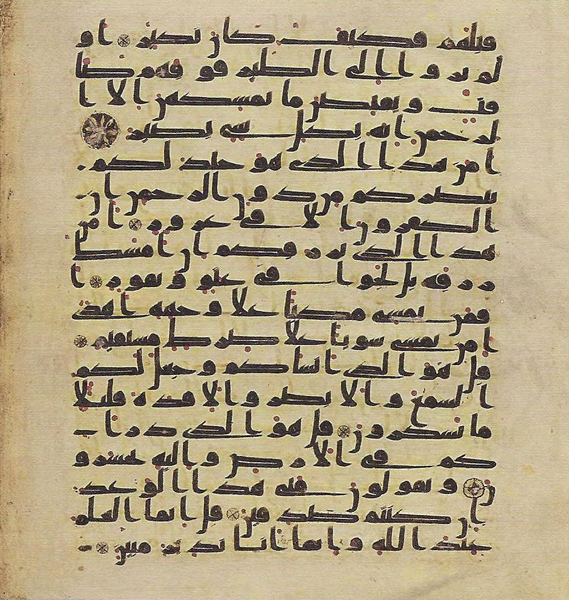 قبلهم فكيف كان نكير او
لم يروا الى الطير فوقهم صا
فت ويقبضن ما يمسكهن الا ا
لرحمن انه بكل شي بصير
امن هذا الذي هو جند لكم
ينصركم من دون الرحمن ان
الكفرون الا في غرور امن
هذا الذي يرزقكم ان امسك
رزقه بل لجوا في عتو ونفور ا
فمن يمشي مكبا على وجهه اهدى
امن يمشي سويا على صرط مستقيم
قل هو الذي انشاكم وجعل لكم
السمع والابصر والافدة قليلا
ما تشكرون قل هو الذي ذرا
كم في الارض واليه تحشرو
ن ويقولون متى هذا الوعد
ان كنتم صدقين قل انما العلم
عند الله وانما انا نذير مبين